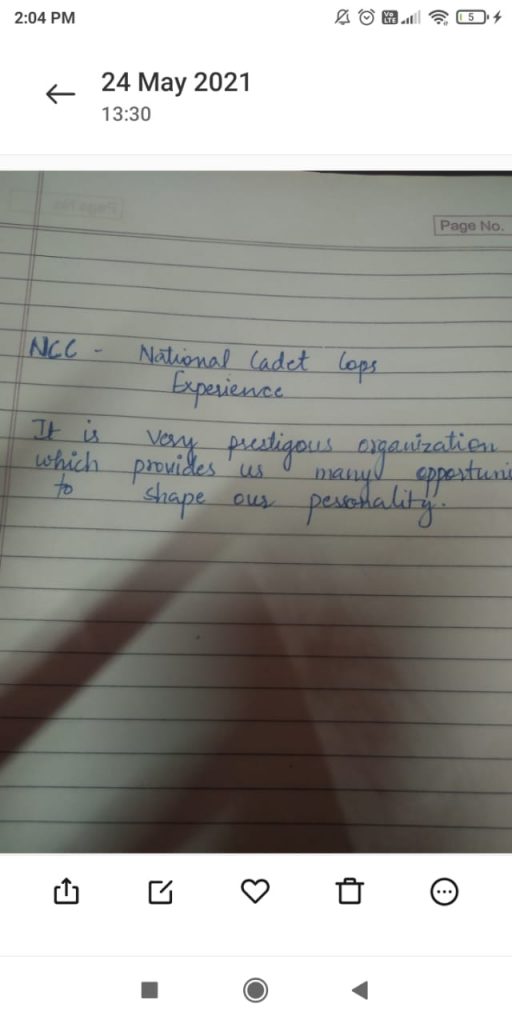 2:04 PM
5
24 May 2021
13:30
Page No.
NCC - National Cadet Cops
Experience
It is very prestigous organization
which provides us many opportuni
to shape our personality.